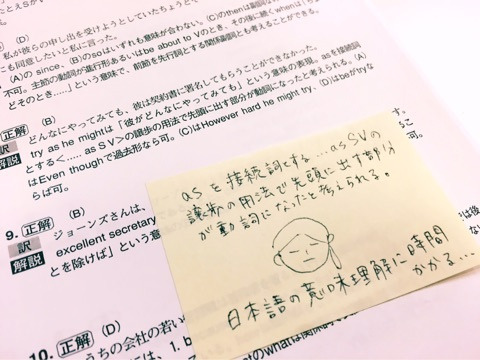 とえSが
(D)
私が彼らの申し出を受けようとしていたちょうどそ
こも同意したいと私に言った。
(A)の since、(B)のsoはいずれも意味が合わない。(C)のthenは副詞
不可。主節の動詞が進行形あるいはbe about to Vのとき、その後に続くwhenは「
どそのとき……」という意味で、前節を先行詞とする関係副詞とも考えることができる。
正解 (B)
訳 どんなにやってみても、彼は契約書に署名してもらうことができなかった。
解説 try as he mightは「彼がどんなにやってみても」という意味の表現。asを接続詞
とする〈…… as S V〉の譲歩の用法で先頭に出す部分が動詞になったと考えられる。(A)
はEven thoughで過去形なら可。(C)はHowever hard he might try、(D)はbeがtryな
らば可。
9. 正解 (B)
訳 ジョーンズさんは、
解説 excellent secretary
とを除けば」という意
10. 正解 (D)
うちの会社の若い
asを接続詞とする…as SVの
譲歩の用法で先頭に出す部分
が動詞になったと考えられる。
日本語の意味理解に時間
かかる…